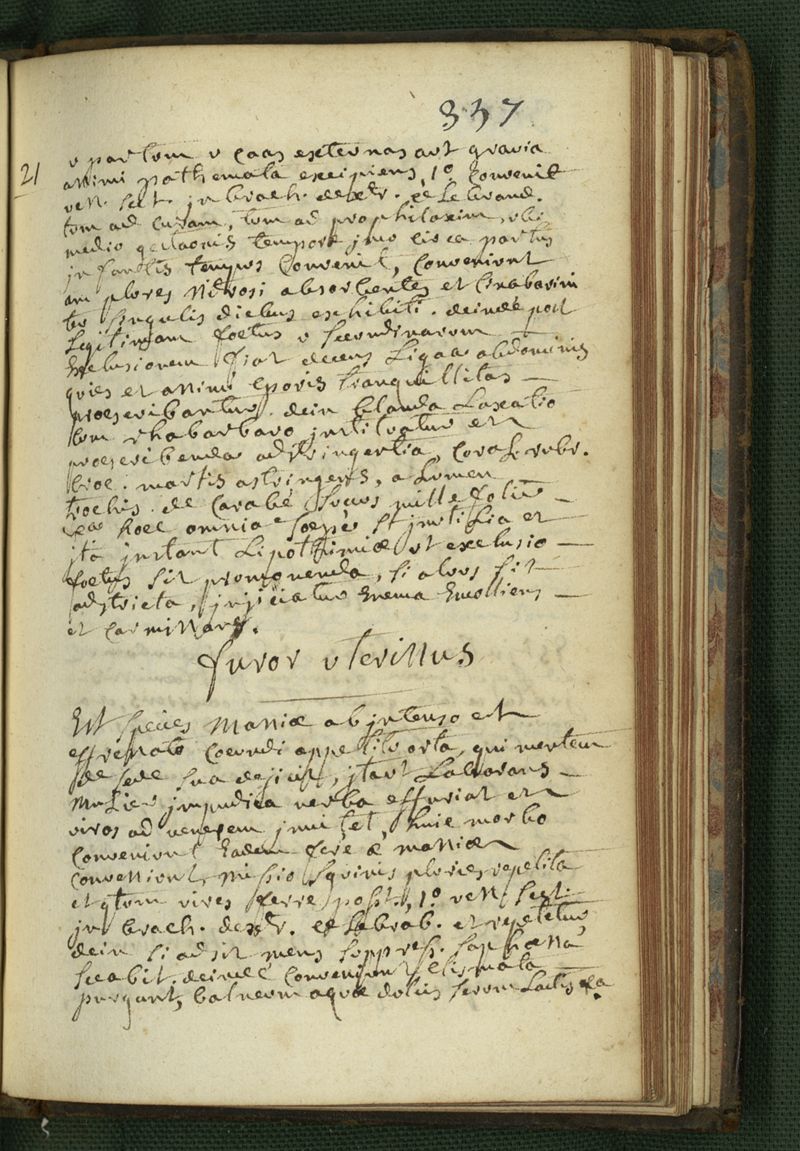 337
21
v partum v caas externas aut gravia
animi pathemata excipiens, 1o convenit
ven. sect. in brach. dextr. celebrand.
tum ad curam, tum ad prophilaxim, ubi
medio gestaonis tempore jmo circa partus
jnstantis tempus convenit, conveniunt
plures nitrosi absorbentes et cinabarini
singulis diebus exhibiti. deinde post
Legitimam foetus v secundinarum
Exclusionem fiat decens Ligaa abdominis
quies et animi cporis tranquillitas
proescribantur. dein blanda Laxatio
cum rhabarbaro jnstituatur et
proescribenda adstringentia, coral. rubr.
croc. martis astringens, alumen
trochis. de Carabé succus millefolii
hoec omnia soepe st jnutilia et
jta jnstant Lipothimiæ ut exclusio
foetus sit promovenda, si alvus sit
adstricta, jnjiciatur Enema Emolliens
et carminans.
furor vterinus
Est species Maniæ ab jntenso et
effrenato coeundi appetitu orta, qui mentem
de sede sua dejicit, jtaut Laborans
mulier jmpudica verba effutiat et
viros ad venerem jnvitet, huic morbo
conveniunt Eadem fere æ maniæ
conveniunt, missio sguinis pluries repetita
et qtum vires ferre posst, 1o ven. sect.
jn brach. dextr. celebrab. et repetetur
dein si adsit mens. suppress. saphæna
secabit. deinde conveniunt clismata
purgant, balneum aquæ dulcis serum Lactis